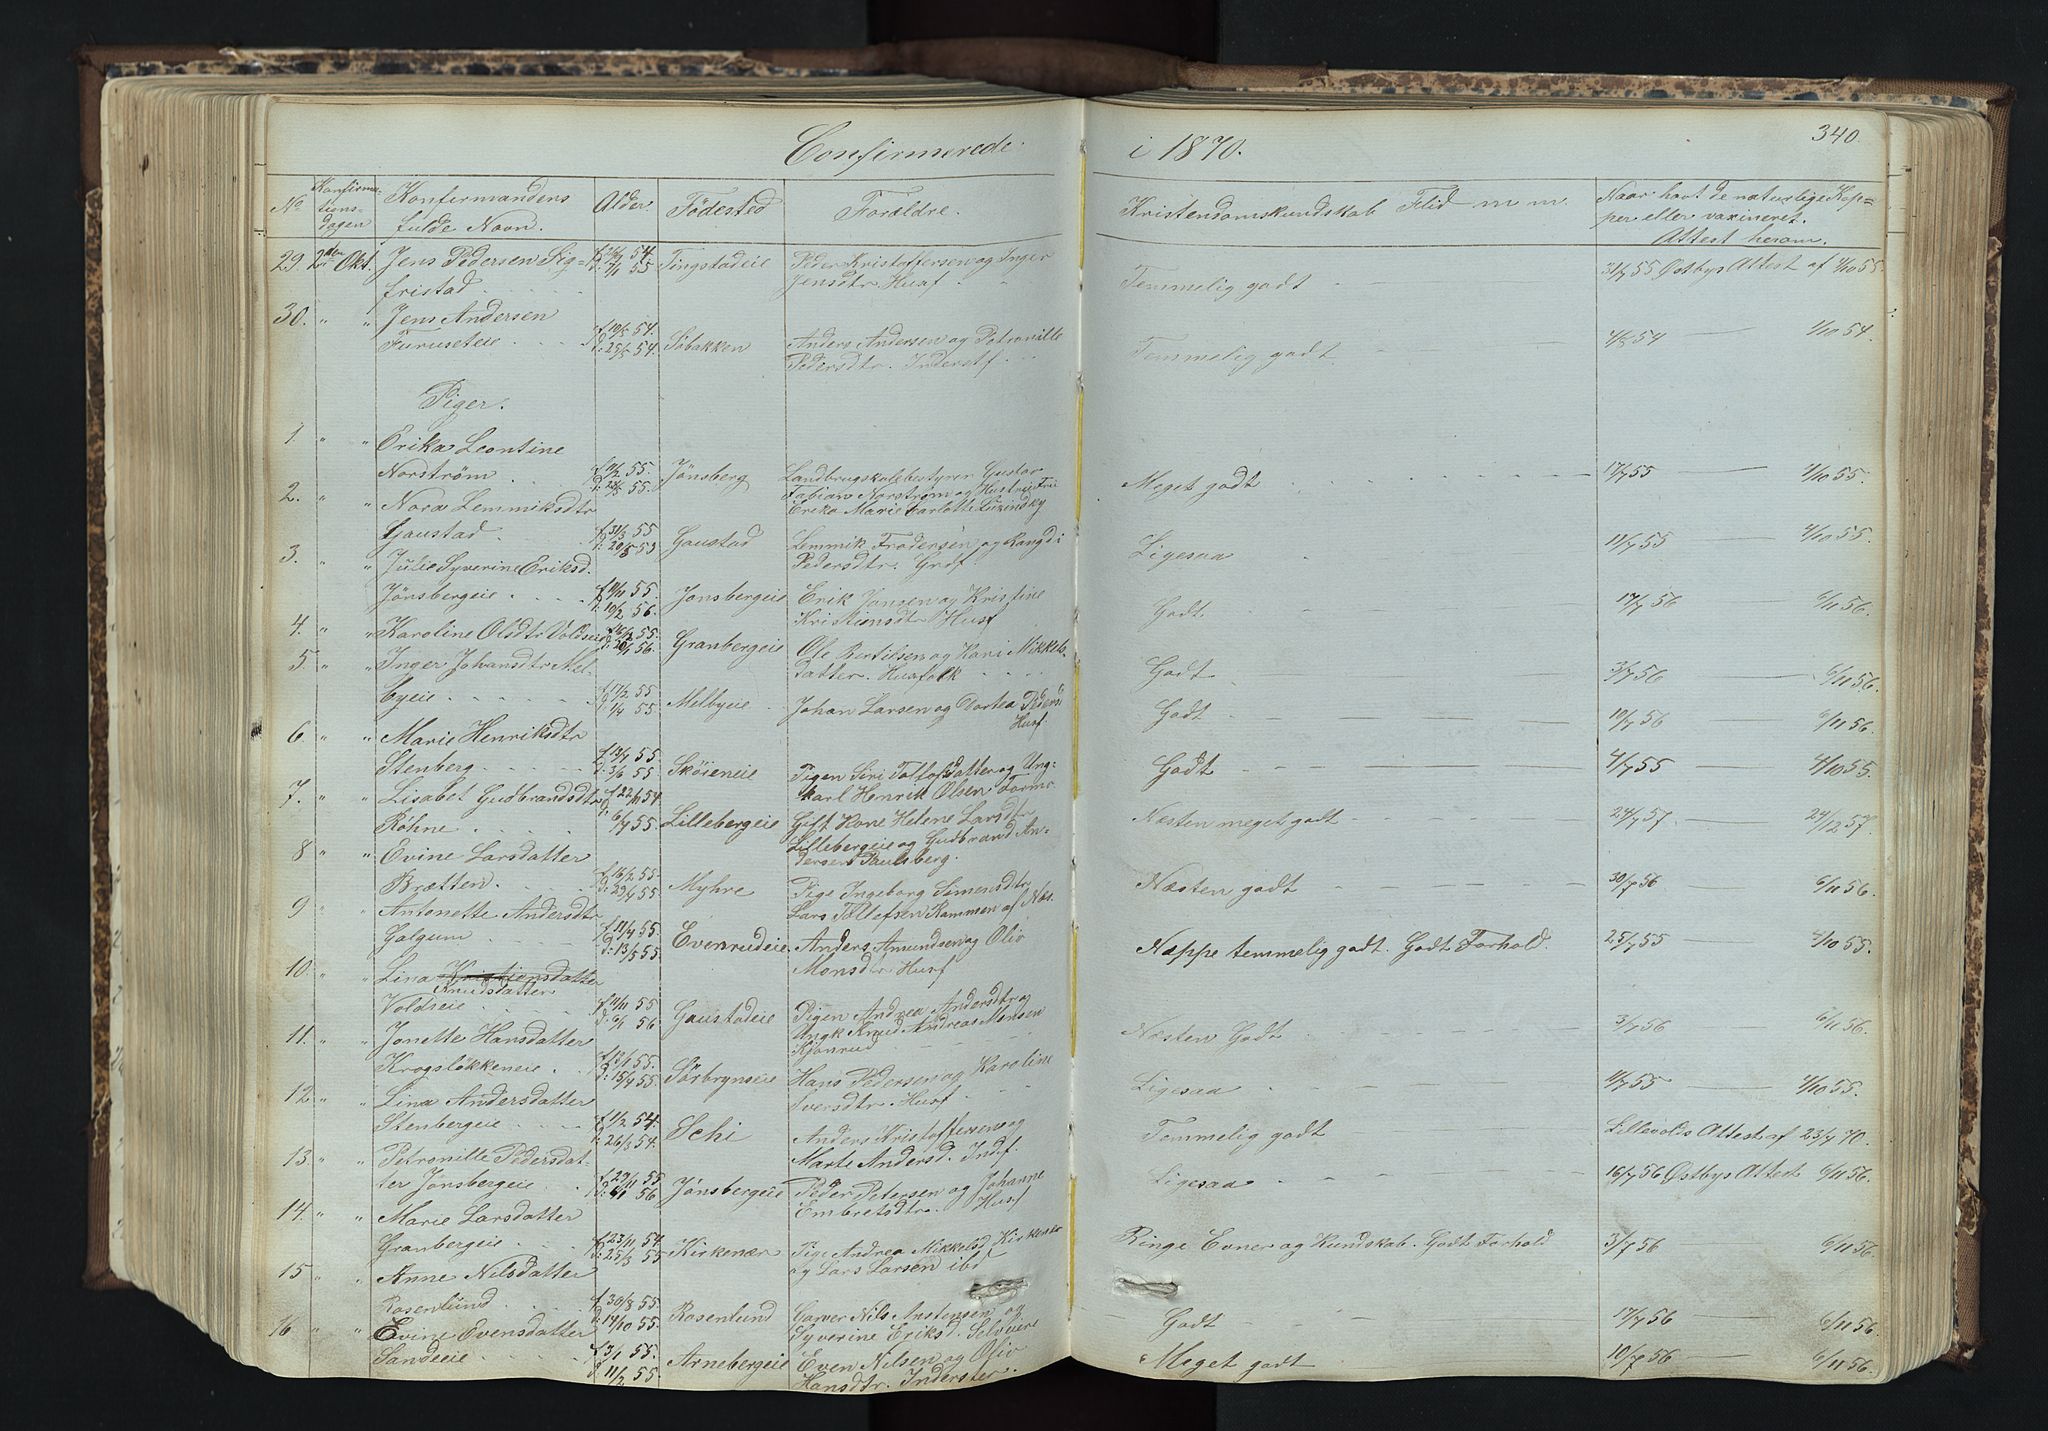 Confirmerede i 1870.
340
No Konfirmationsdagen Konfirmandens fulde Navn. Alder. Födested Forældre. Kristendomskundskab Flid m m Naar havt de naturlige Kopper eller vaxineret. Attest herom.
29. 2den Okt. Jens Pedersen Sig= f 54. Tingstadeie Peder Kristoffersen og Inger 31/7 55 Østbys Attest af 4/10 55.
fristad d: 7/1 55 Jensdtr Husf. Temmelig godt
30. " " Jens Andersen
Furuseteie f 10/5 54. Sobakken Anders Andersen og Petronille 54 4/10 54.
d: 25/5 54. Pedersdtr. Inderstf. Temmelig godt
Piger.
1. " " Erika Leontine
Norström f 55. Jønsberg Landbrugskolebestyrer Gustav 17/7 55 4/10 55.
d: 55. Fabian Norström og Hustru Meget godt
2. " " Nora Lemmiksdtr Erika Marie Carlotte
Gaustad f 31/3 55 Gaustad Lemmik Frodersen og Rangdi 11/7 55 4/10 55.
d: 20/5 55 Pedersdtr. Grdf. Ligesaa
3. " " Julie Syverine Eriksd.
Jönsbergeie f 11/11 55. Jønsbergeie Erik Jonsen og Kristine 17/7 56 6/11 56.
d: 10/2 56. Kristiansdtr Husf Godt
4. " " Karoline Olsdtr Voldseie f 55. Granbergeie Ole Bertilsen og Kari Mikkels-
d: 56. datter. Husfolk Godt 3/7 56 6/11 56.
5. " " Inger Johansdtr Mel-
byeie f 17/2 55 Melbyeie Johan Larsen og Dortea Pedersd Godt 10/7 56 6/11 56.
d: 1/4 55 Husf.
6. " " Marie Henriksdtr
Stenberg f 55 Skóieneie Pigen Siri Tollofsdatter og Ung- Godt 4/7 55 4/10 55.
d: 3/6 55 karl Henrik Olsen
7. " " Lisabet Gudbrandsdtr f 22/11 54.
Röhne d: 6/4 55 Lillebergeie Gift Kone Helene Larsdtr Næsten meget godt 24/7 57. 24/12 57.
Lillebergeie og Gudbrand An-
dersen Paulsberg.
8 " " Evine Larsdatter
Brætten. f 16/2 55 Myhre Pige Ingeborg Simensdtr Næsten godt 30/7 56 6/11 56.
d: 29/4 55 Lars Tollefsen Rammen af Næs.
9 " " Antonette Andersdtr
Galgum f 11/4 55 Evenrudeie Anders Amundsen og Oliv Næppe temmelig godt. Godt Forhold. 25/7 55 4/10 55.
d: 13/5 55 Monsdtr. Husf
10. " " Lina Kristiansdatter
Knudsdatter
Voldseie f 11/11 55 Gaustadeie Pigen Andrea Andersdtr og 3/7 56 6/11 56.
d: 6/1 56 Ungk Knud Andreas Monsen Næsten Godt
Kjonrud
11. " " Jonette Hansdatter
Krogslökkeneie f 13/1 55 Sørbrynseie Hans Pedersen og Karoline Ligesaa 4/7 55 4/10 55.
d: 15/4 55. Iversdtr. Husf.
12. " " Lina Andersdatter
Stenbergeie f 1/2 54. Schi Anders Kristoffersen og Temmelig godt Lillevolds Attest af 23/7 70.
d: 26/3 54. Marte Andersd. Indf.
13. " " Petronille Pedersdat-
ter Jønsbergeie f 29/11 55 Jønsbergeie Peder Petersen og Johanne Ligesaa 16/7 56 Østbys Attest 6/11 56.
d: 56 Embretsdtr. Husf
14. " " Marie Larsdatter
Granbergeie f 23/11 54. Kirkenær Pige Andrea Mikkelsd. Kirkenær Ringe Evner og Kundskab. Godt Forhold 3/7 56 6/11 56.
d: 25/3 55 og Lars Larsen ibd
15 " " Anne Nilsdatter
Rosenlund f 30/8 55. Rosenlund Garver Nils Anstensen og Godt 17/7 56 6/11 56.
d: 14/10 55. Syverine Eriksd.
16. " " Evine Evensdatter
Sandeeie f 3/1 55. Arnebergeie Even Nilsen og Oliv Meget godt 10/7 56 6/11 56.
d 11/2 55. Hansdtr. Inderster.